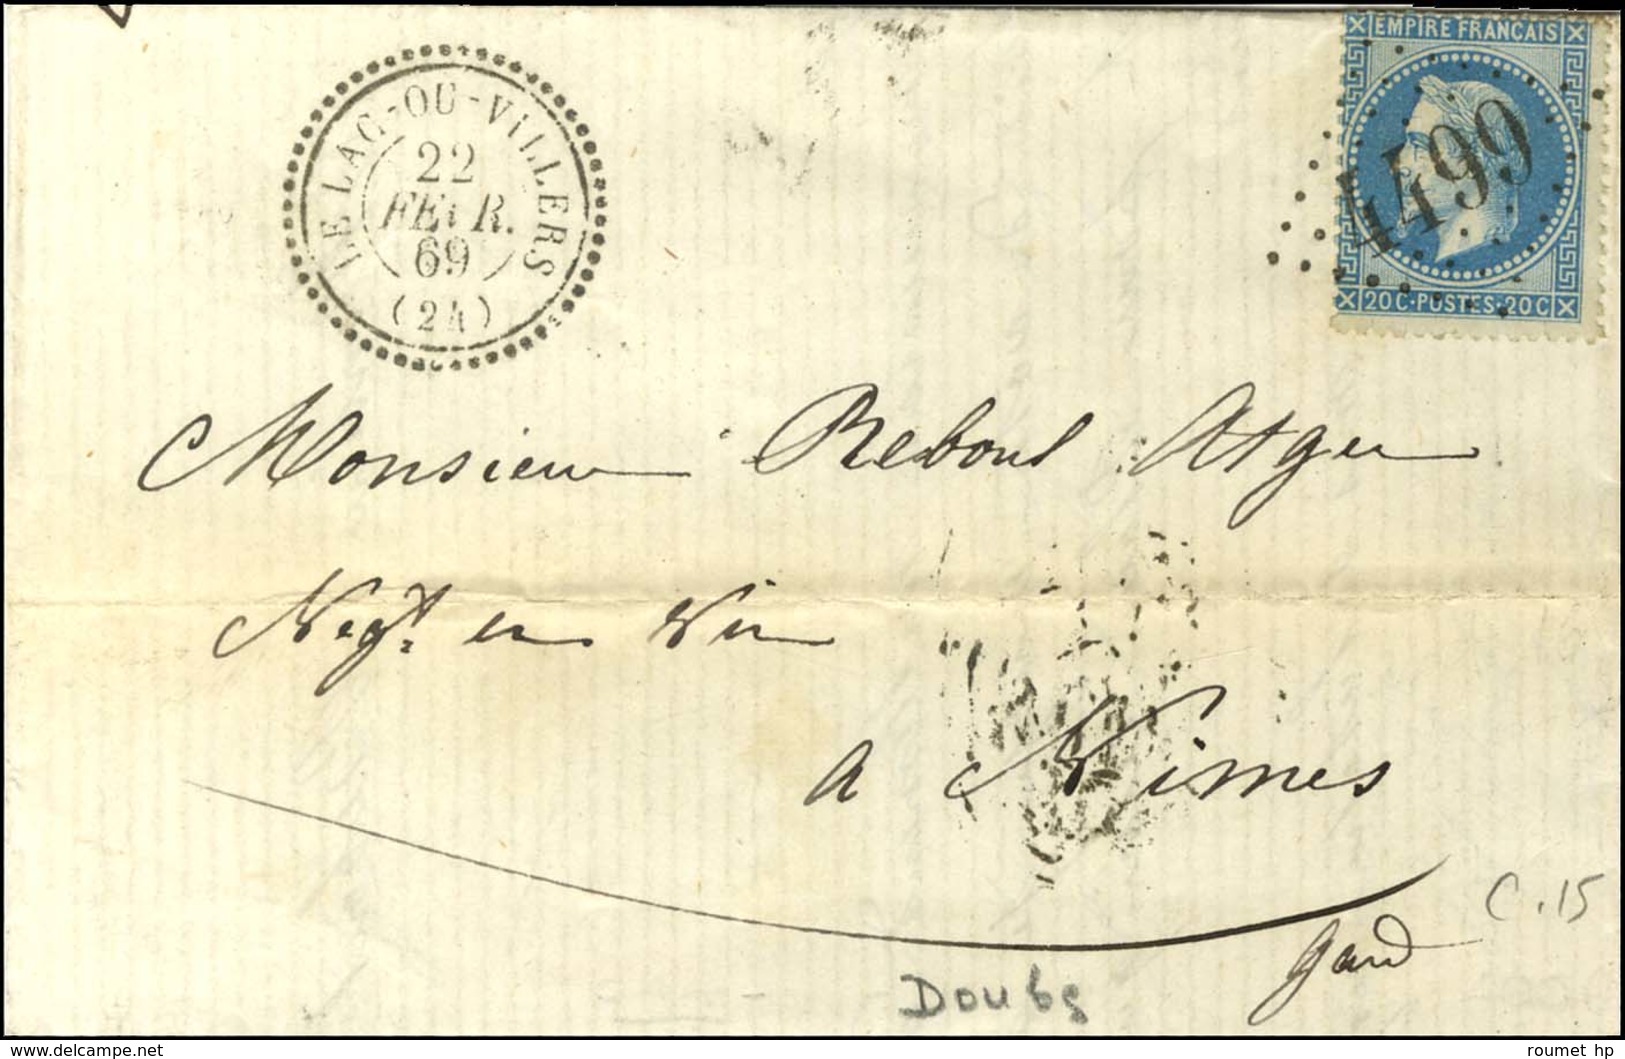 LE LAC-OU-ViLLERS
22
FEVR.
69
(24)
EMPIRE FRANCAIS
4499
20C·POSTES·20C
Monsieur Reboul Atger
Negt. en Vin
a Nimes
Gard
C.15
Doubs
www.delcampe.net
roumet hp